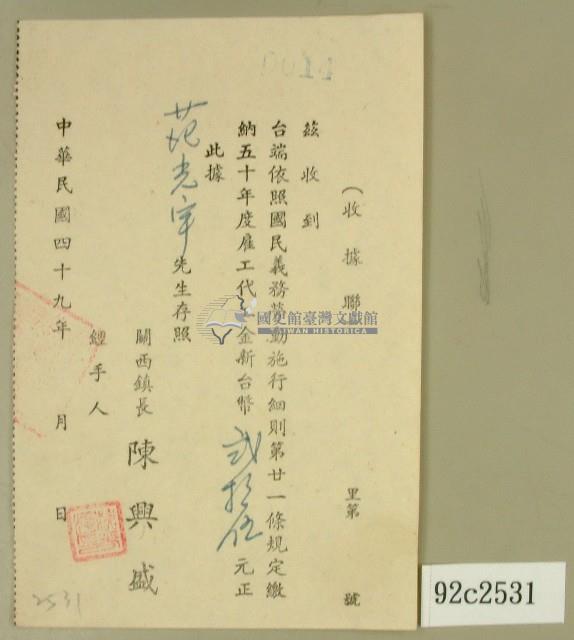 0011
(收據聯)
里第 號
茲收到
台端依照國民義務勞動施行細則第廿一條規定繳
納五十年度雇工代金新台幣貳拾伍元正
此據
范光宇先生存照
關西鎮長 陳興盛
經手人
中華民國四十九年 月 日
2531
國史館臺灣文獻館
TAIWAN HISTORICA
92c2531